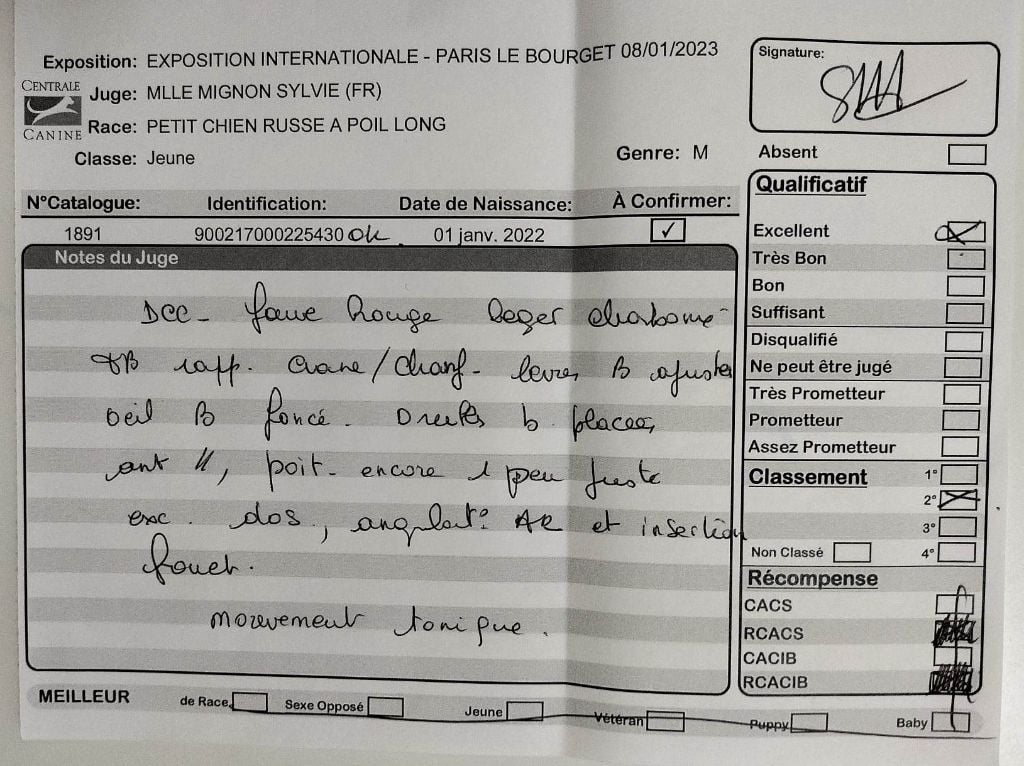 Exposition: EXPOSITION INTERNATIONALE - PARIS LE BOURGET 08/01/2023
CENTRALE CANINE
Juge: MLLE MIGNON SYLVIE (FR)
Race: PETIT CHIEN RUSSE A POIL LONG
Classe: Jeune
Genre: M
N°Catalogue: Identification: Date de Naissance: À Confirmer:
1891 900217000225430 OK 01 janv. 2022 ✓
Notes du Juge
DCC - fauve Rouge leger charbonné -
TB rapp. crane/chanf - levres B ajustées
oeil B foncé. Oreilles b placées,
ant //, poit - encore 1 peu juste
exc. dos, angulat° AR et insertion
fouet.
mouvement tonique.
Signature:
Absent
Qualificatif
Excellent
Très Bon
Bon
Suffisant
Disqualifié
Ne peut être jugé
Très Prometteur
Prometteur
Assez Prometteur
Classement 1°
2°
3°
Non Classé 4°
Récompense
CACS
RCACS
CACIB
RCACIB
MEILLEUR de Race Sexe Opposé Jeune Vétéran Puppy Baby